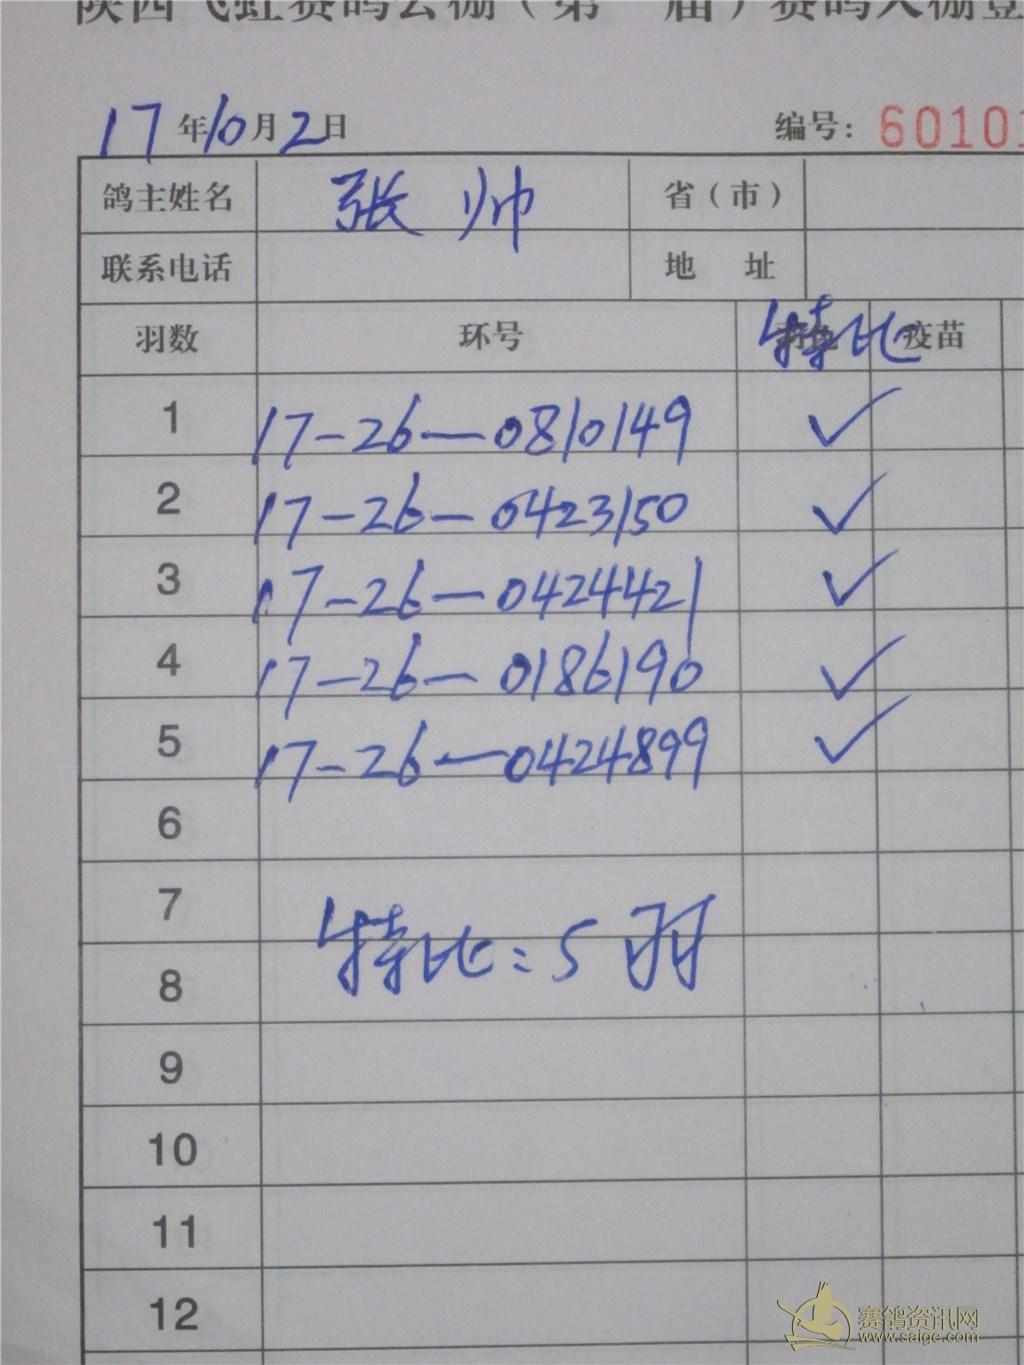 陕西飞虹赛鸽公棚（第 届）赛鸽入棚登
17年10月2日 编号: 60101
鸽主姓名 张帅 省（市）
联系电话 地 址
羽数 环号 特比 疫苗
1 17-26-0810149 ✓
2 17-26-0423150 ✓
3 17-26-0424421 ✓
4 17-26-0186190 ✓
5 17-26-0424899 ✓
6
7
特比: 5羽
8
9
10
11
12
赛鸽资讯网
www.saige.com